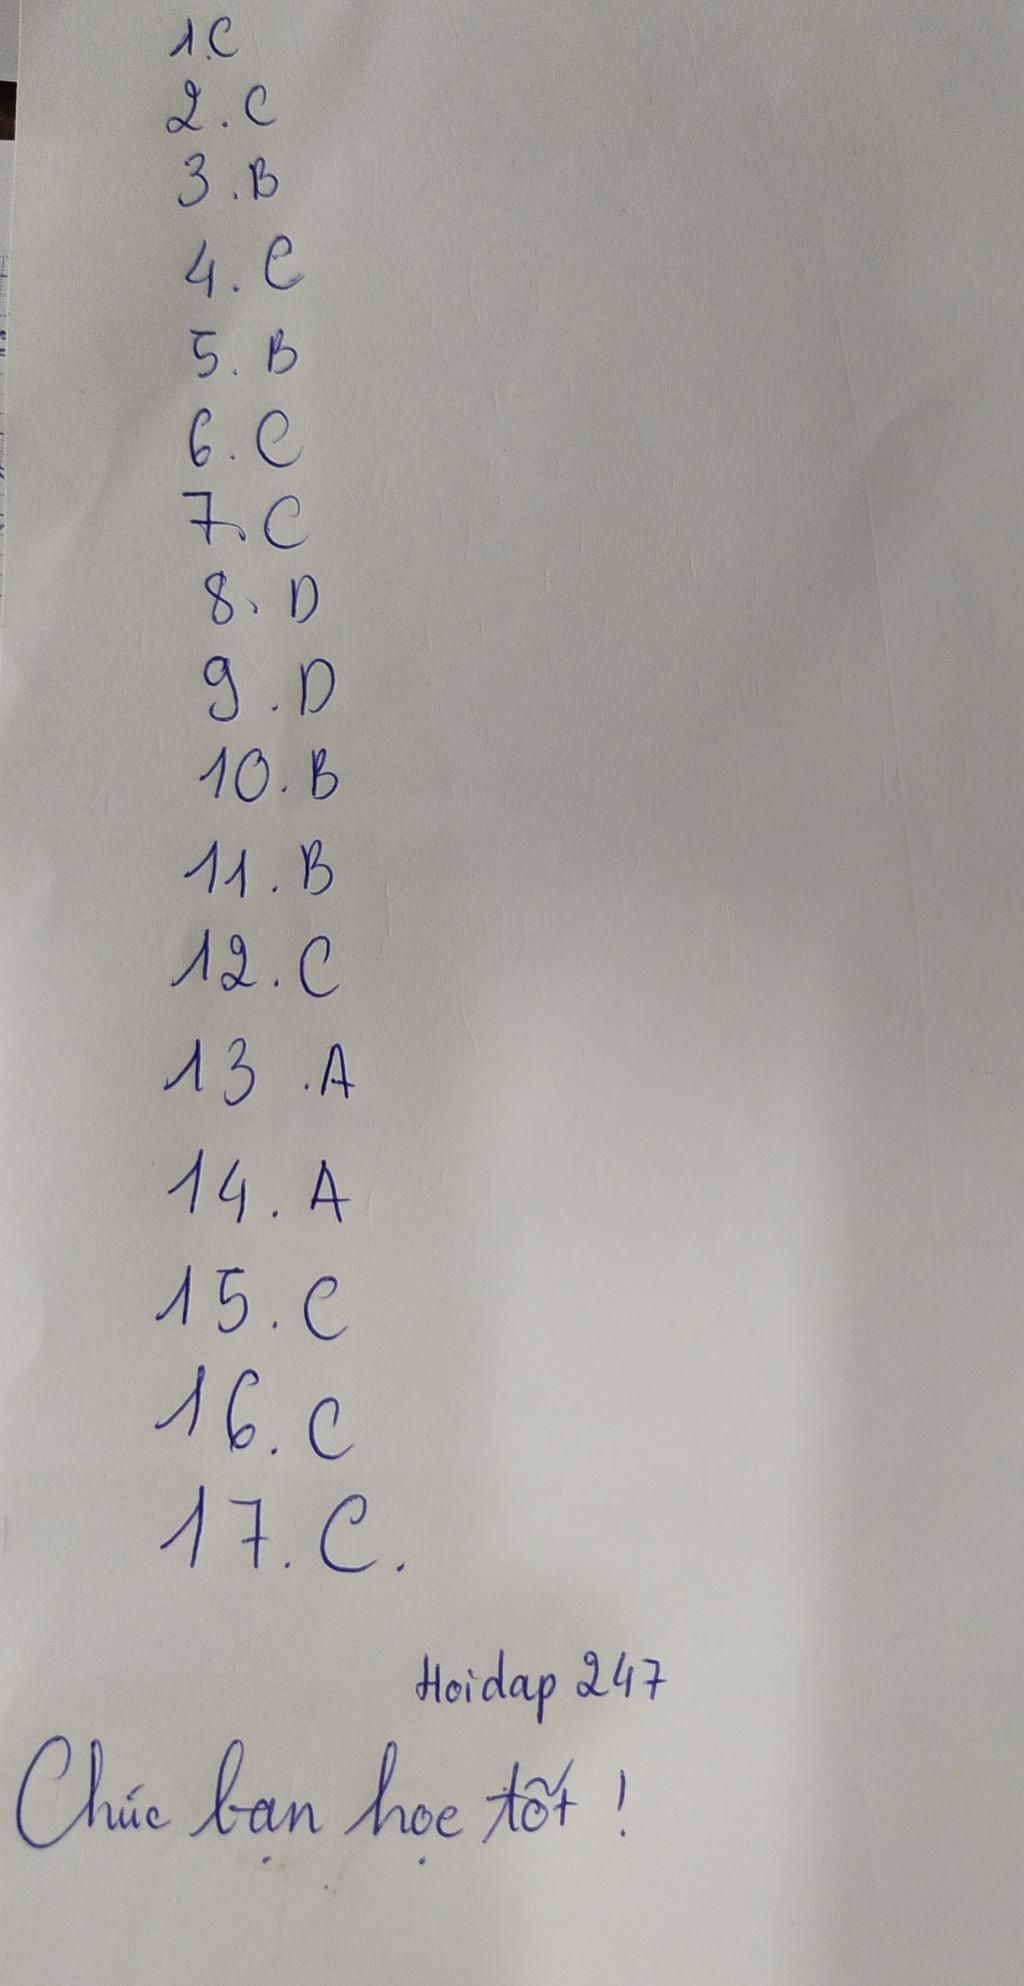 1.C
2.C
3.B
4.C
5.B
6.C
7.C
8.D
9.D
10.B
11.B
12.C
13.A
14.A
15.C
16.C
17.C.
Hoidap 247
Chúc bạn học tốt!